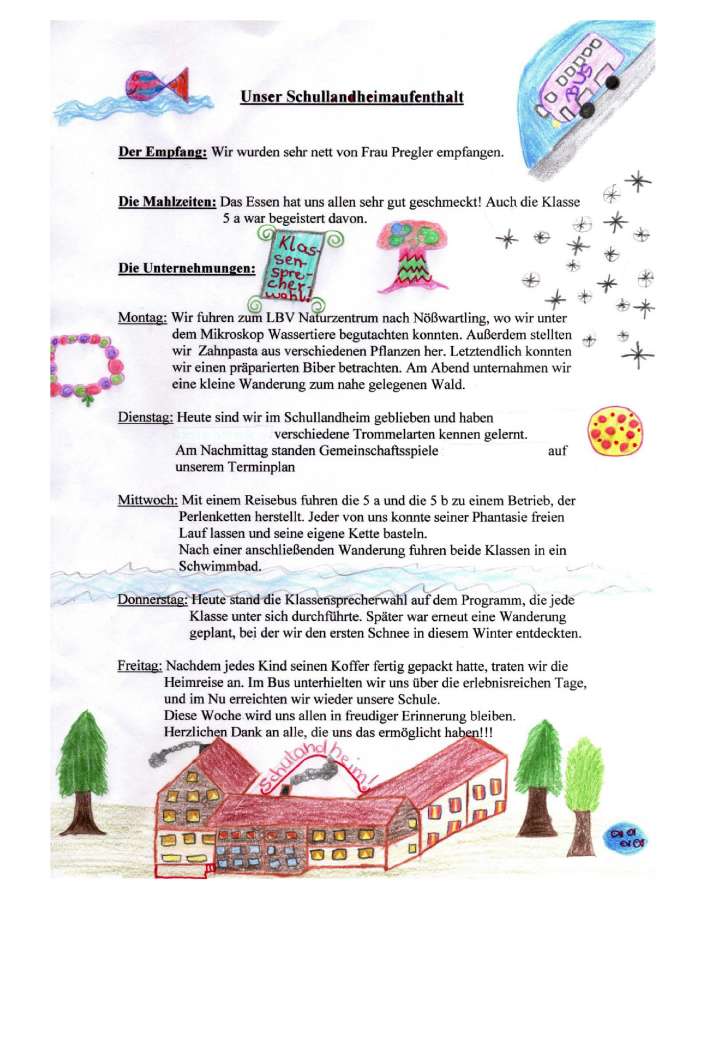 Unser Schullandheimaufenthalt
BUS
Der Empfang: Wir wurden sehr nett von Frau Pregler empfangen.
Die Mahlzeiten: Das Essen hat uns allen sehr gut geschmeckt! Auch die Klasse
5 a war begeistert davon.
Klas-
sen-
spre-
cher-
wahl!
Die Unternehmungen:
Montag: Wir fuhren zum LBV Naturzentrum nach Nößwartling, wo wir unter
dem Mikroskop Wassertiere begutachten konnten. Außerdem stellten
wir Zahnpasta aus verschiedenen Pflanzen her. Letztendlich konnten
wir einen präparierten Biber betrachten. Am Abend unternahmen wir
eine kleine Wanderung zum nahe gelegenen Wald.
Dienstag: Heute sind wir im Schullandheim geblieben und haben
verschiedene Trommelarten kennen gelernt.
Am Nachmittag standen Gemeinschaftsspiele auf
unserem Terminplan
Mittwoch: Mit einem Reisebus fuhren die 5 a und die 5 b zu einem Betrieb, der
Perlenketten herstellt. Jeder von uns konnte seiner Phantasie freien
Lauf lassen und seine eigene Kette basteln.
Nach einer anschließenden Wanderung fuhren beide Klassen in ein
Schwimmbad.
Donnerstag: Heute stand die Klassensprecherwahl auf dem Programm, die jede
Klasse unter sich durchführte. Später war erneut eine Wanderung
geplant, bei der wir den ersten Schnee in diesem Winter entdeckten.
Freitag: Nachdem jedes Kind seinen Koffer fertig gepackt hatte, traten wir die
Heimreise an. Im Bus unterhielten wir uns über die erlebnisreichen Tage,
und im Nu erreichten wir wieder unsere Schule.
Diese Woche wird uns allen in freudiger Erinnerung bleiben.
Herzlichen Dank an alle, die uns das ermöglicht haben!!!
Schulandheim!